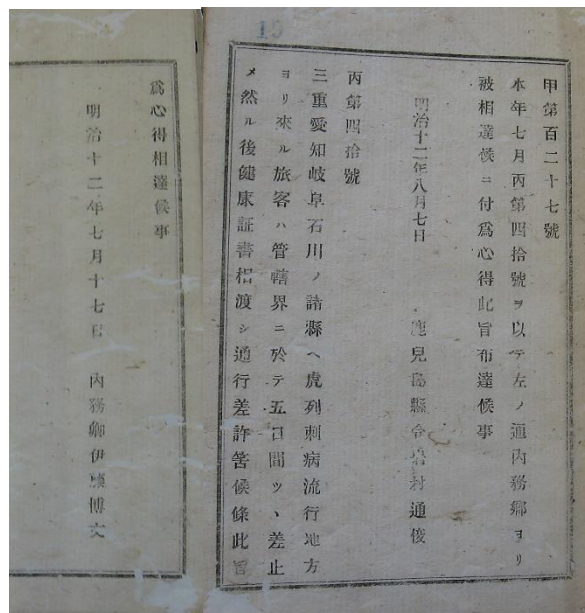 19
甲第百二十七號
本年七月丙第四拾號ヲ以テ左ノ通內務卿ヨリ
被相達候ニ付爲心得此旨布達候事
明治十二年八月七日 鹿兒島縣令岩村通俊
丙第四拾號
三重愛知岐阜石川ノ諸縣ヘ虎列刺病流行地方
ヨリ來ル旅客ハ管轄界ニ於テ五日間ツヽ差止
メ然ル後健康証書相渡シ通行差許筈候條此旨
爲心得相達候事
明治十二年七月十七日 內務卿伊藤博文